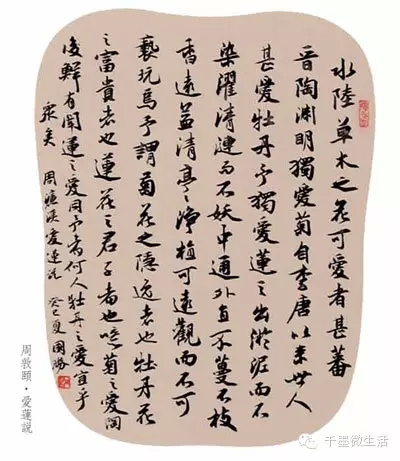 水陸草木之花可愛者甚蕃
晉陶淵明獨愛菊自李唐以來世人
甚愛牡丹予獨愛蓮之出淤泥而不
染濯清漣而不妖中通外直不蔓不枝
香遠益清亭亭淨植可遠觀而不可
褻玩焉予謂菊花之隱逸者也牡丹花
之富貴者也蓮花之君子者也噫菊之愛陶
後鮮有聞蓮之愛同予者何人牡丹之愛宜乎
眾矣 周濂溪愛蓮說 癸巳夏國勝
周敦頤·愛蓮説
千墨微生活